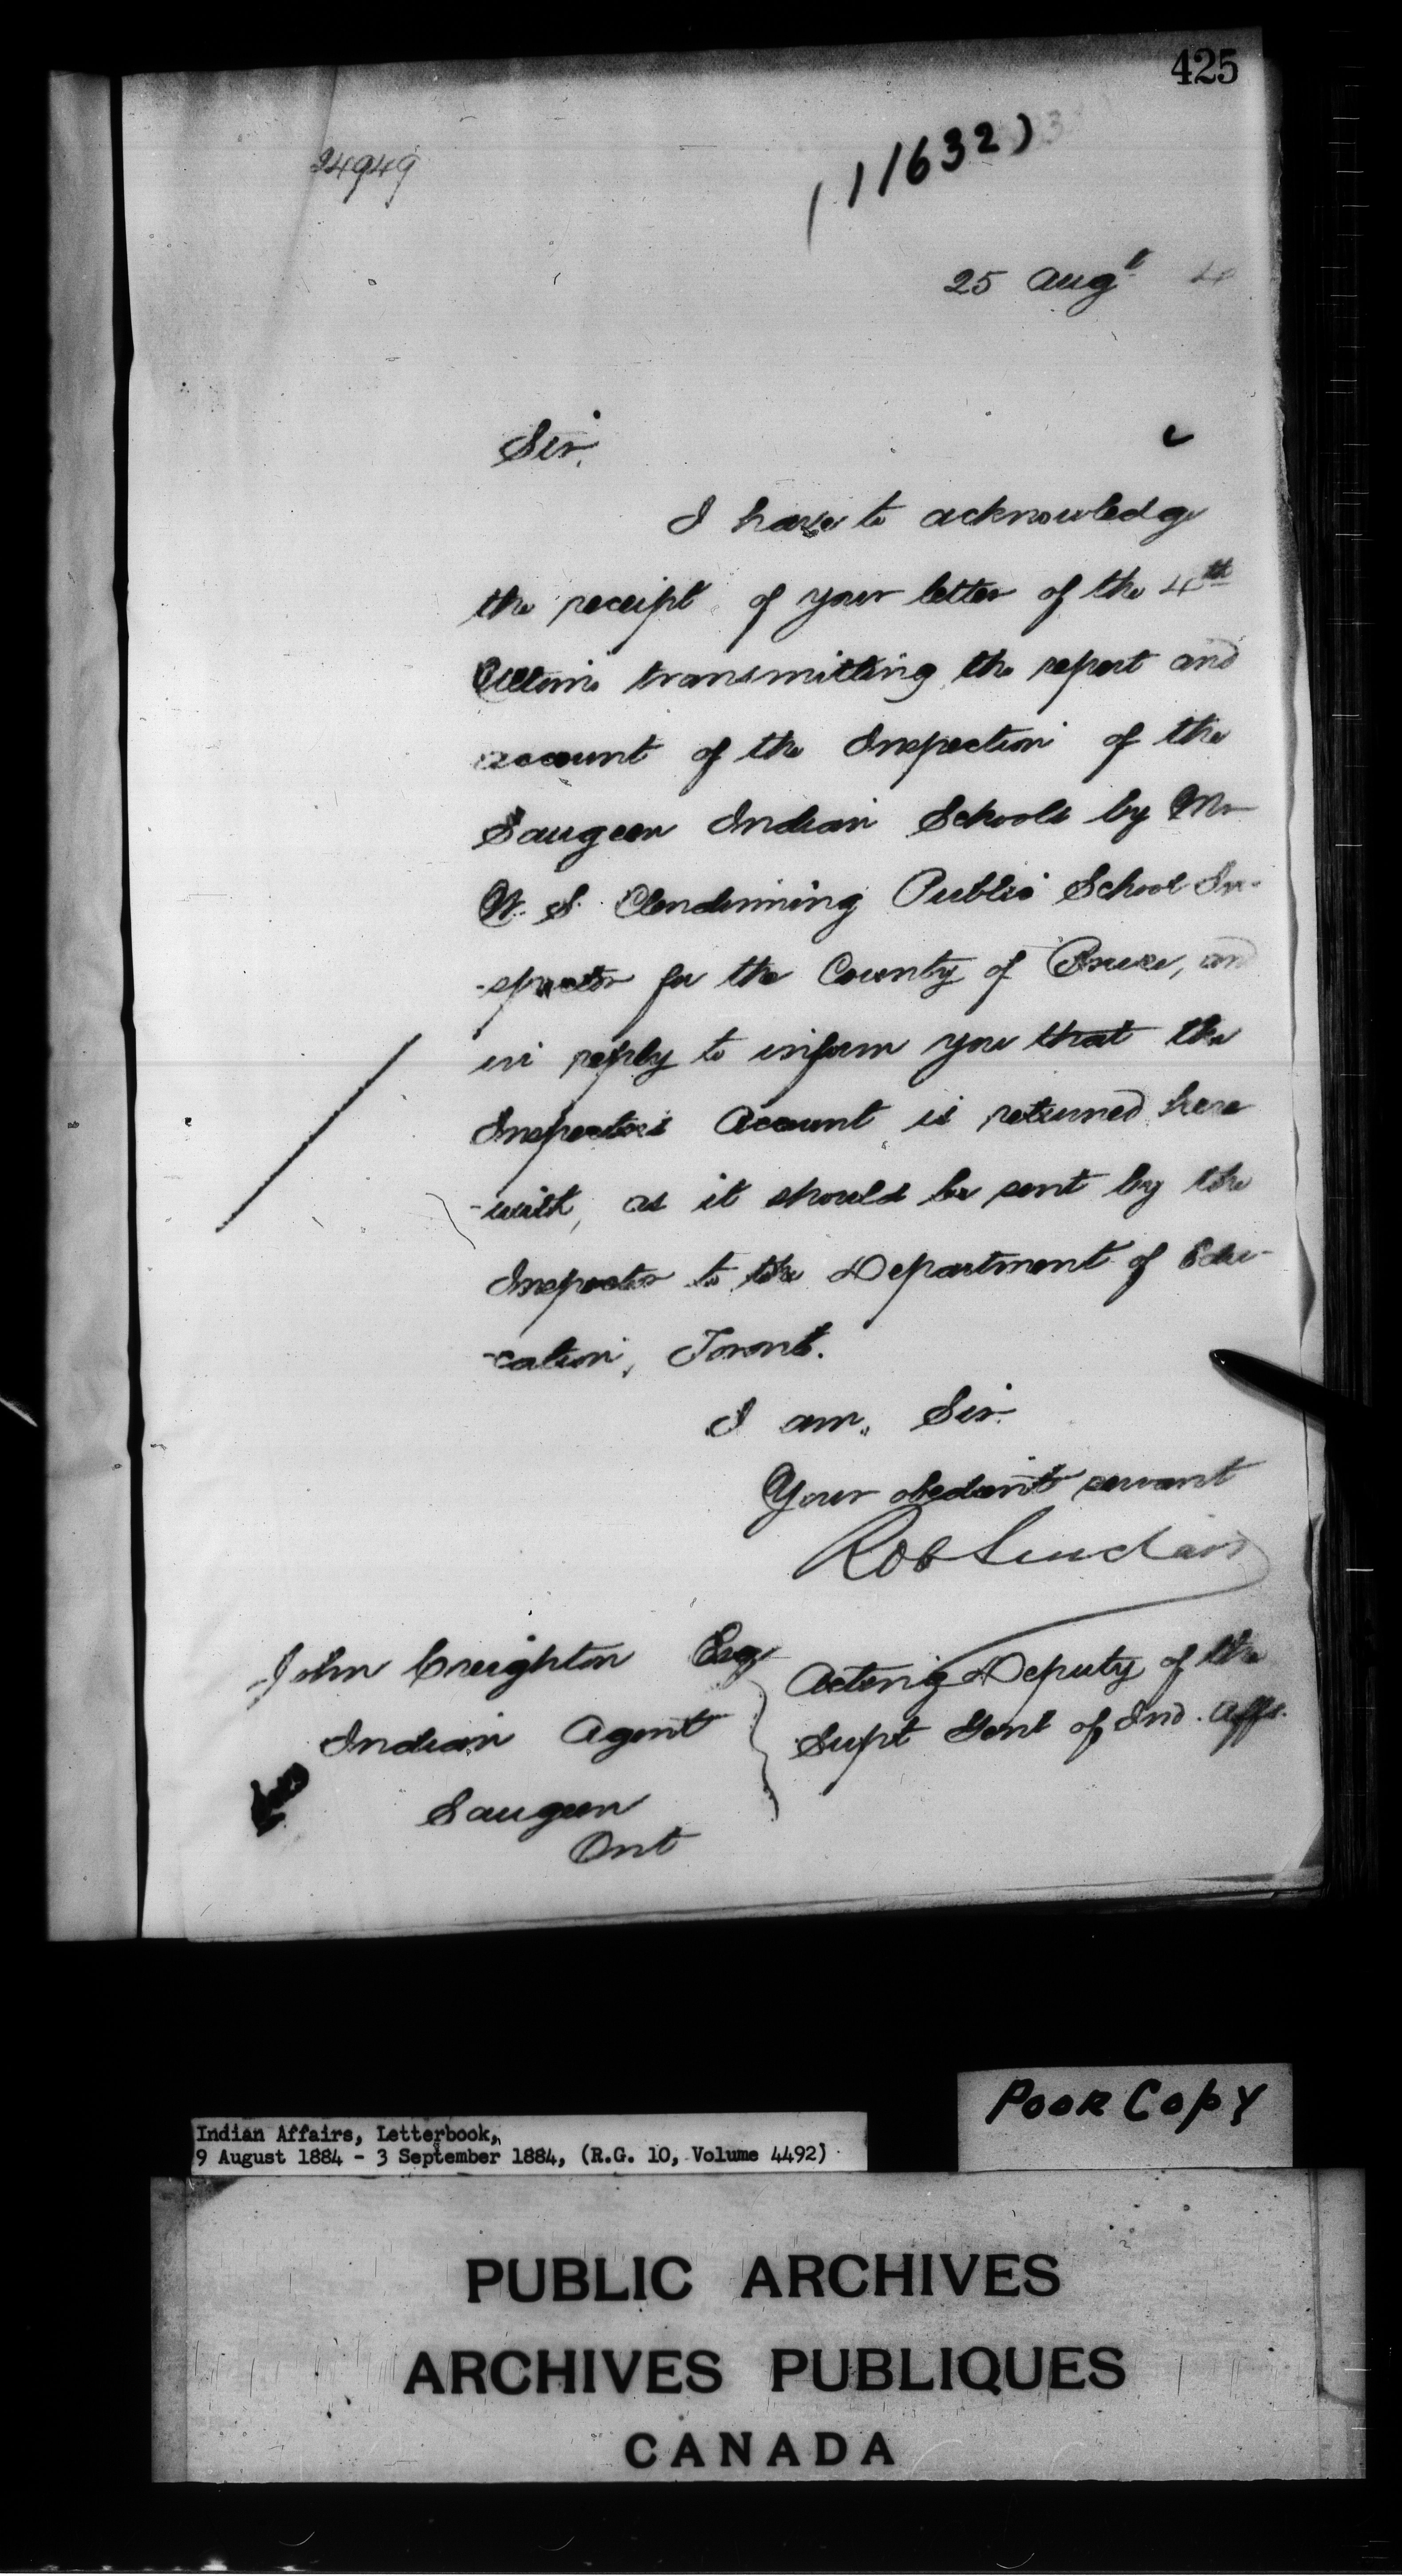 425
24949
(11632)
25 Augt 4
Sir,
I have to acknowledge
the receipt of your letter of the 4th
Ultimo transmitting the report and
account of the Inspection of the
Saugeen Indian Schools by Mr
W. S. Clendinning Public School In-
-spector for the County of Bruce, and
in reply to inform you that the
Inspectors Account is returned here
-with, as it should be sent by the
Inspector to the Department of Edu-
-cation, Toronto.
I am, Sir.
Your obedient servant
Rob Sinclair
John Creighton Esq
Indian Agent
Saugeen
Ont
Acting Deputy of the
Supt Genl of Ind. Affs.
POOR COPY
Indian Affairs, Letterbook,
9 August 1884 - 3 September 1884, (R.G. 10, Volume 4492)
PUBLIC ARCHIVES
ARCHIVES PUBLIQUES
CANADA